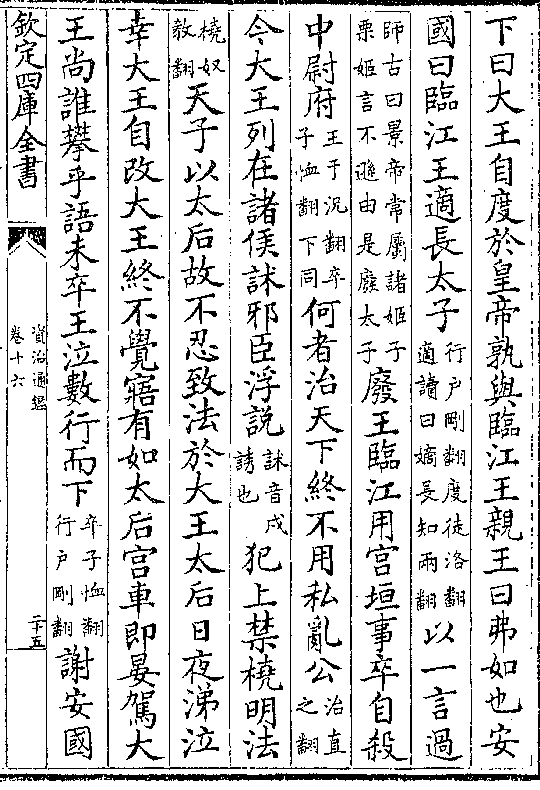 下曰大王自度於皇帝孰與臨江王親王曰弗如也安
國曰臨江王適長太子行戶剛翻度徒洛翻適讀曰嫡長知兩翻以一言過
師古曰景帝常屬諸姬子栗姬言不遜由是廢太子廢王臨江用宮垣事卒自殺
中尉府王于況翻卒子恤翻下同何者治天下終不用私亂公治直之翻
今大王列在諸侯訹邪臣浮說訹音戌誘也犯上禁橈明法
橈奴敎翻天子以太后故不忍致法於大王太后日夜涕泣
幸大王自改大王終不覺寤有如太后宮車即晏駕大
王尚誰攀乎語未卒王泣數行而下卒子恤翻行戶剛翻謝安國
欽定四庫全書
資治通鑑
卷十六
二十五